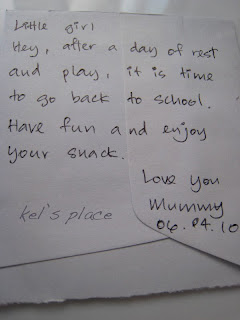 Little girl
Hey, after a day of rest
and play, it is time
to go back to school.
Have fun and enjoy
your snack.
Love you
Mummy
06.04.10
kel's place